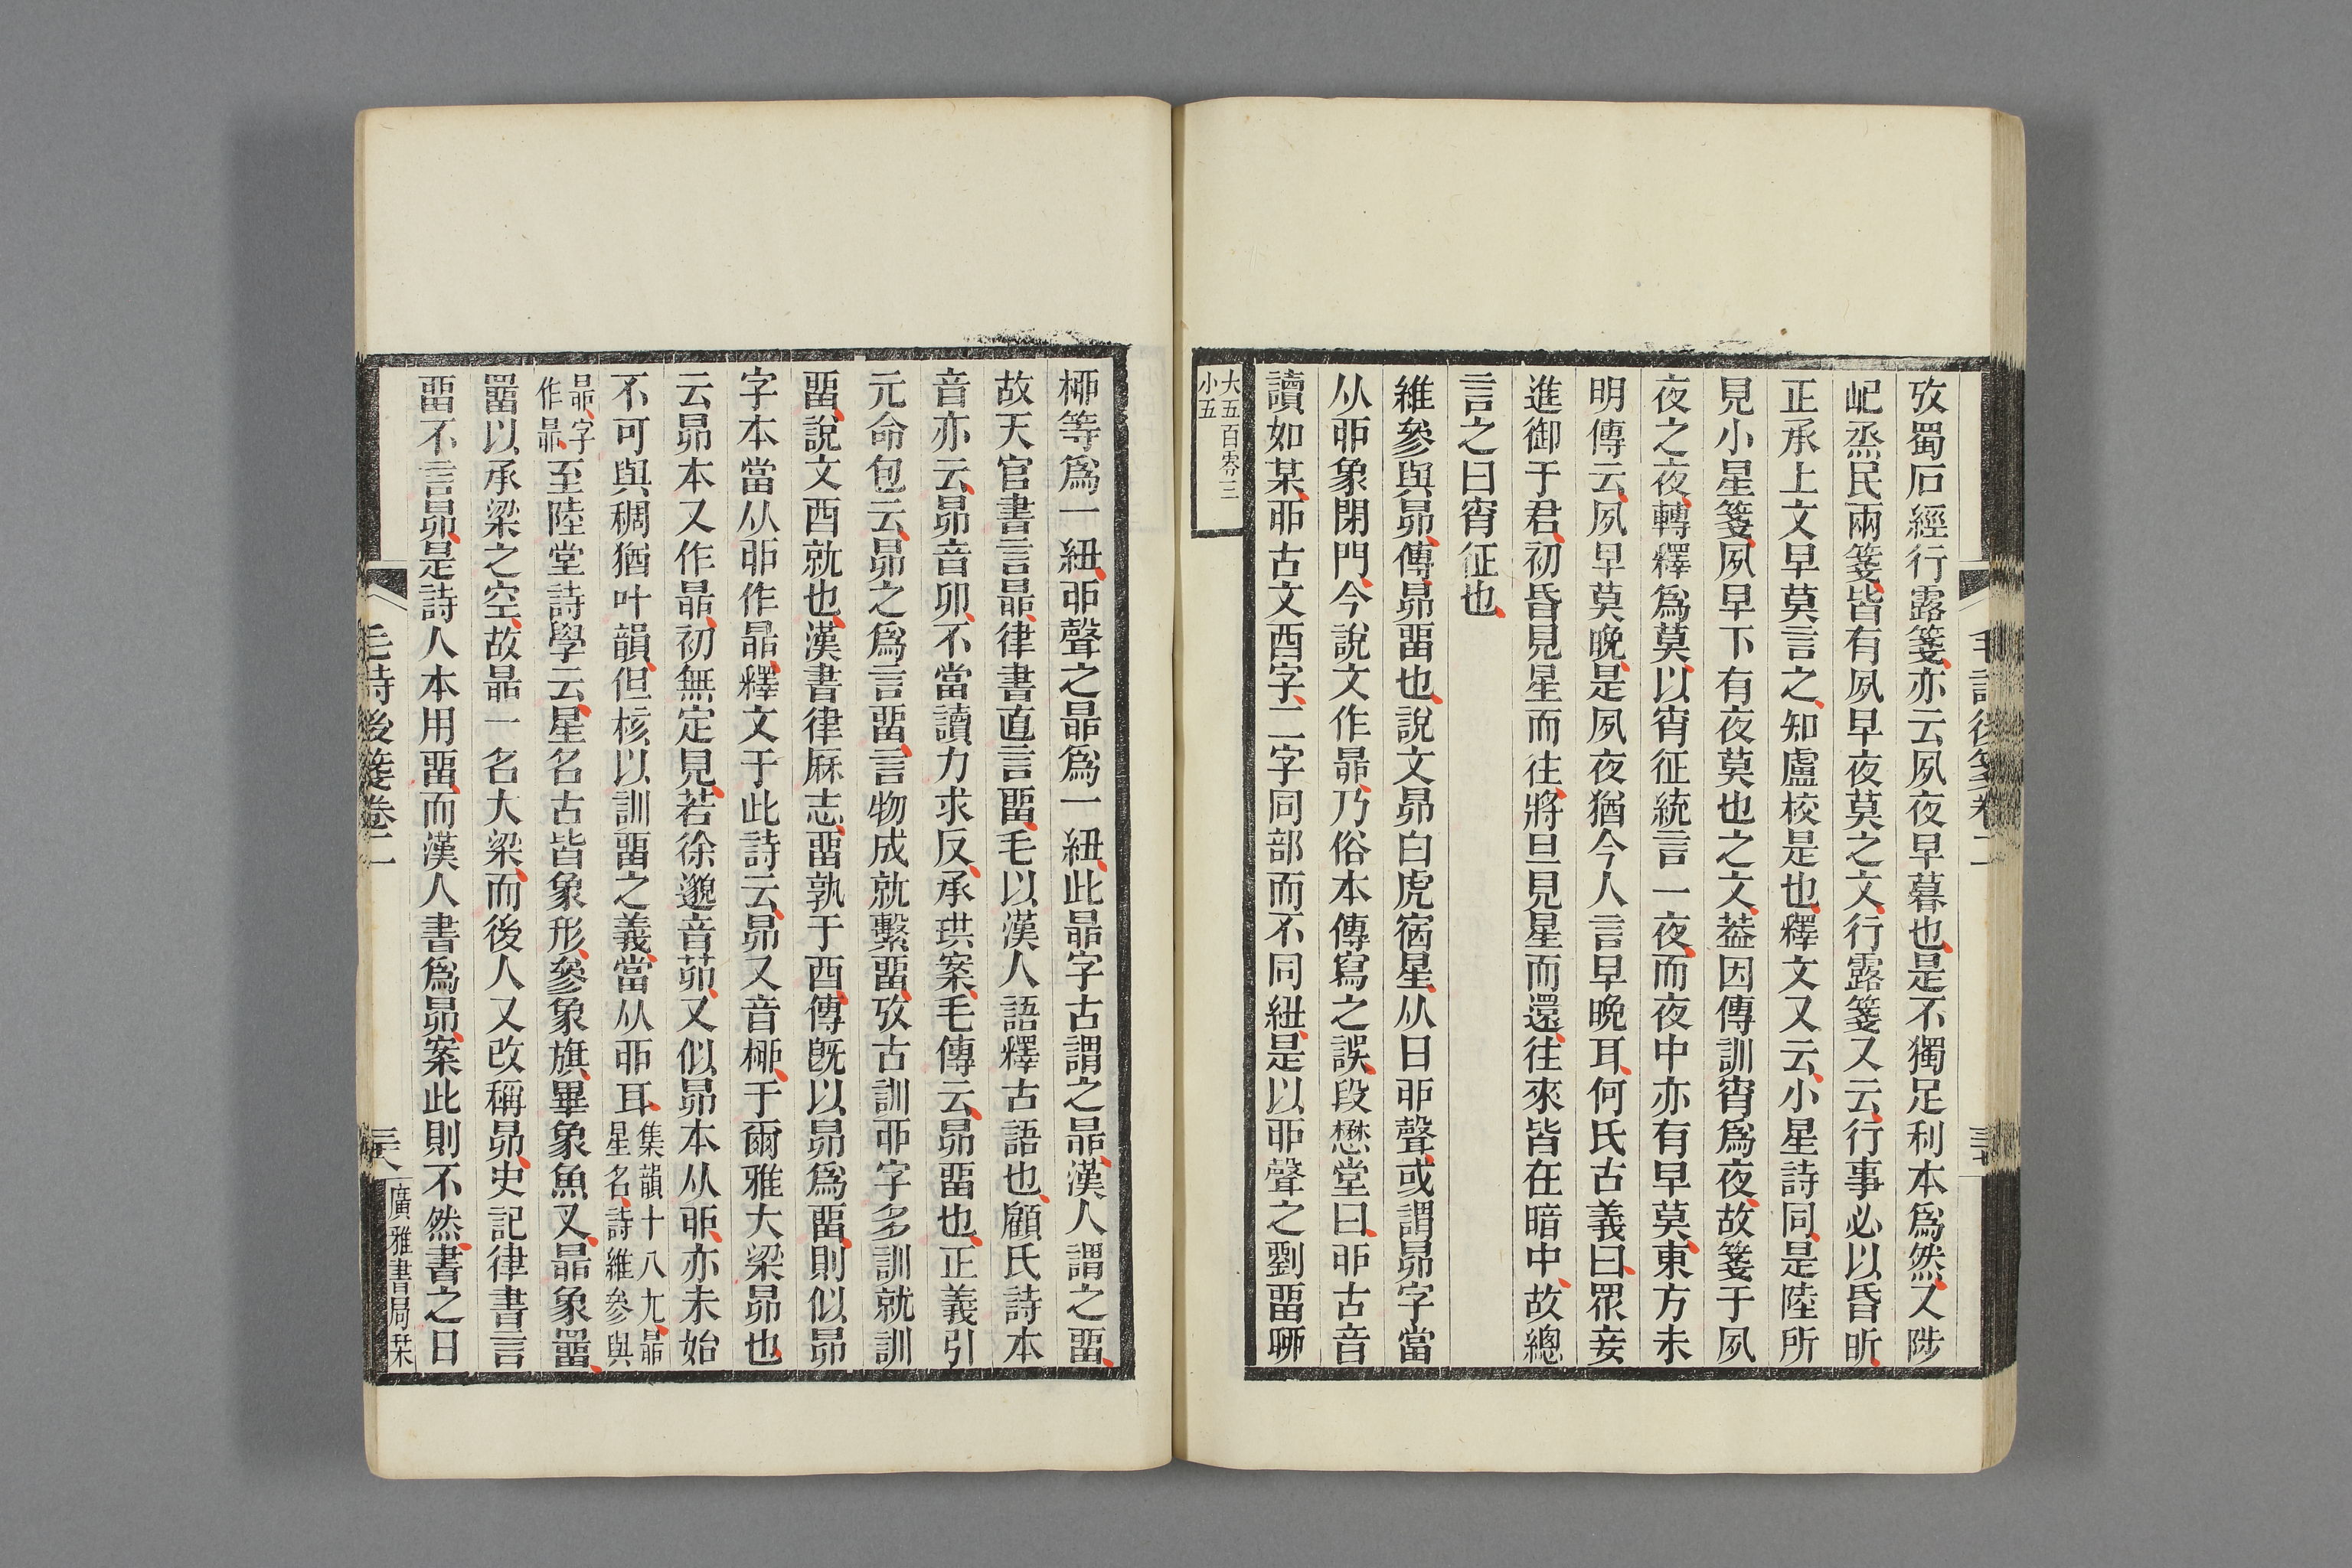 攷蜀石經行露箋亦云夙夜早暮也是不獨足利本爲然又陟
屺烝民兩箋皆有夙早夜莫之文行露箋又云行事必以昏昕
正承上文早莫言之知盧校是也釋文又云小星詩同是陸所
見小星箋夙早下有夜莫也之文葢因傳訓宵爲夜故箋于夙
夜之夜轉釋爲莫以宵征統言一夜而夜中亦有早莫東方未
明傳云夙早莫晚是夙夜猶今人言早晚耳何氏古義曰眾妾
進御于君初昏見星而往將旦見星而還往來皆在暗中故總
言之曰宵征也
維參與昴傳昴畱也說文昴白虎宿星从日戼聲或謂昴字當
从丣象閉門今說文作𣇄乃俗本傳寫之誤段懋堂曰丣古音
讀如某丣古文酉字二字同部而不同紐是以丣聲之劉畱聊
大五百零三
小五
桺等爲一紐戼聲之昴爲一紐此𣇄字古謂之𣇄漢人謂之畱
故天官書言𣇄律書直言畱毛以漢人語釋古語也顧氏詩本
音亦云昴音卯不當讀力求反承珙案毛傳云昴畱也正義引
元命包云昴之爲言畱言物成就繫畱攷古訓丣字多訓就訓
畱說文酉就也漢書律厤志畱孰于酉傳旣以昴爲畱則似昴
字本當从丣作𣇄釋文于此詩云昴又音桺于爾雅大梁昴也
云昴本又作𣇄初無定見若徐邈音茆又似昴本从戼亦未始
不可與稠猶叶韻但核以訓畱之義當从丣耳集韻十八尢𣇄星名詩維參與
𣇄字作𣇄至陸堂詩學云星名古皆象形參象旗畢象魚叉𣇄象罶
罶以承梁之空故𣇄一名大梁而後人又改稱昴史記律書言
畱不言昴是詩人本用畱而漢人書爲昴案此則不然書之日
毛詩後箋卷二
廣雅書局栞